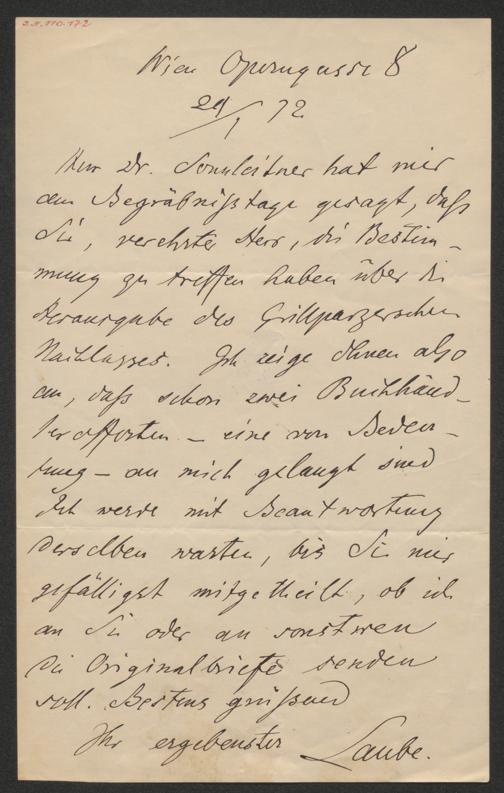 Wien Operngasse 8
29/1 72.
Herr Dr. Sonnleitner hat mir
am Begräbnißtage gesagt, daß
Sie, verehrter Herr, die Bestim-
mung zu treffen haben über die
Herausgabe des Grillparzerschen
Nachlasses. Ich zeige Ihnen also
an, daß schon zwei Buchhänd-
lerofferten – eine von Bedeu-
tung – an mich gelangt sind
Ich werde mit Beantwortung
derselben warten, bis Sie mir
gefälligst mitgetheilt, ob ich
an Sie oder an sonstwen
die Originalbriefe senden
soll. Bestens grüßend
Ihr ergebenster Laube.